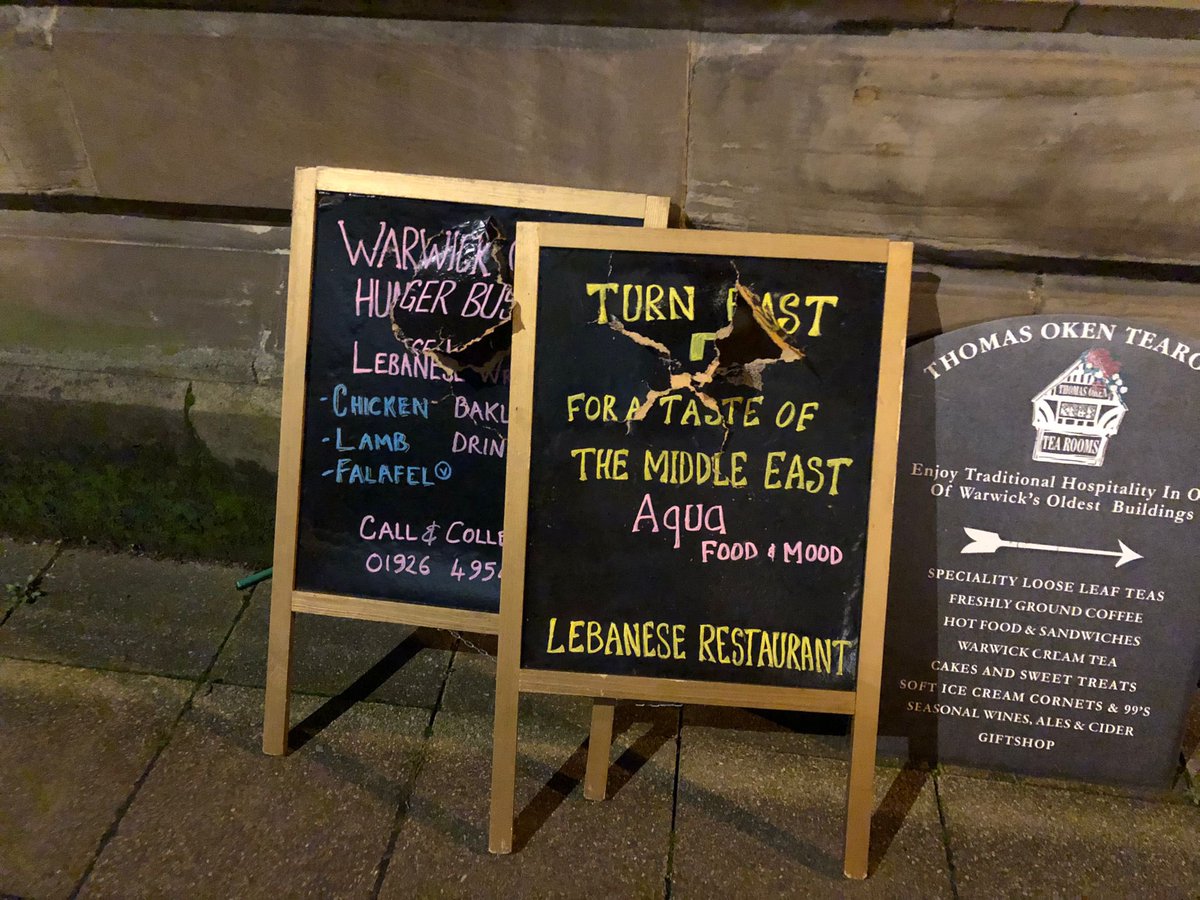 WARWICK
HUNGER BUS
LEBANESE
-CHICKEN-
-LAMB
-FALAFEL Ⓥ
CALL &
01926
TURN EAST
FOR A TASTE OF
THE MIDDLE EAST
Aqua
FOOD & MOOD
LEBANESE RESTAURANT
THOMAS OKEN
THOMAS OKEN
TEA ROOMS
Enjoy Traditional Hospitality In
Of Warwick's Oldest Buildings
SPECIALITY LOOSE LEAF TEAS
FRESHLY GROUND COFFEE
HOT FOOD & SANDWICHES
WARWICK CREAM TEA
CAKES AND SWEET TREATS
SOFT ICE CREAM CORNETS & 99'S
SEASONAL WINES, ALES & CIDER
GIFTSHOP